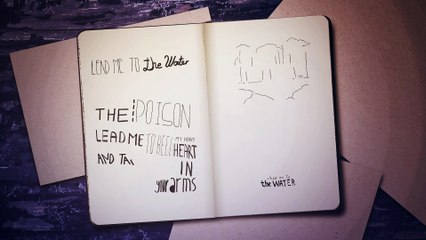 LEAD ME TO the Water
THE POISON
LEAD ME TO HEEL MY HEAVY HEART
AND TA
IN
your arms
lead me to
the WATER